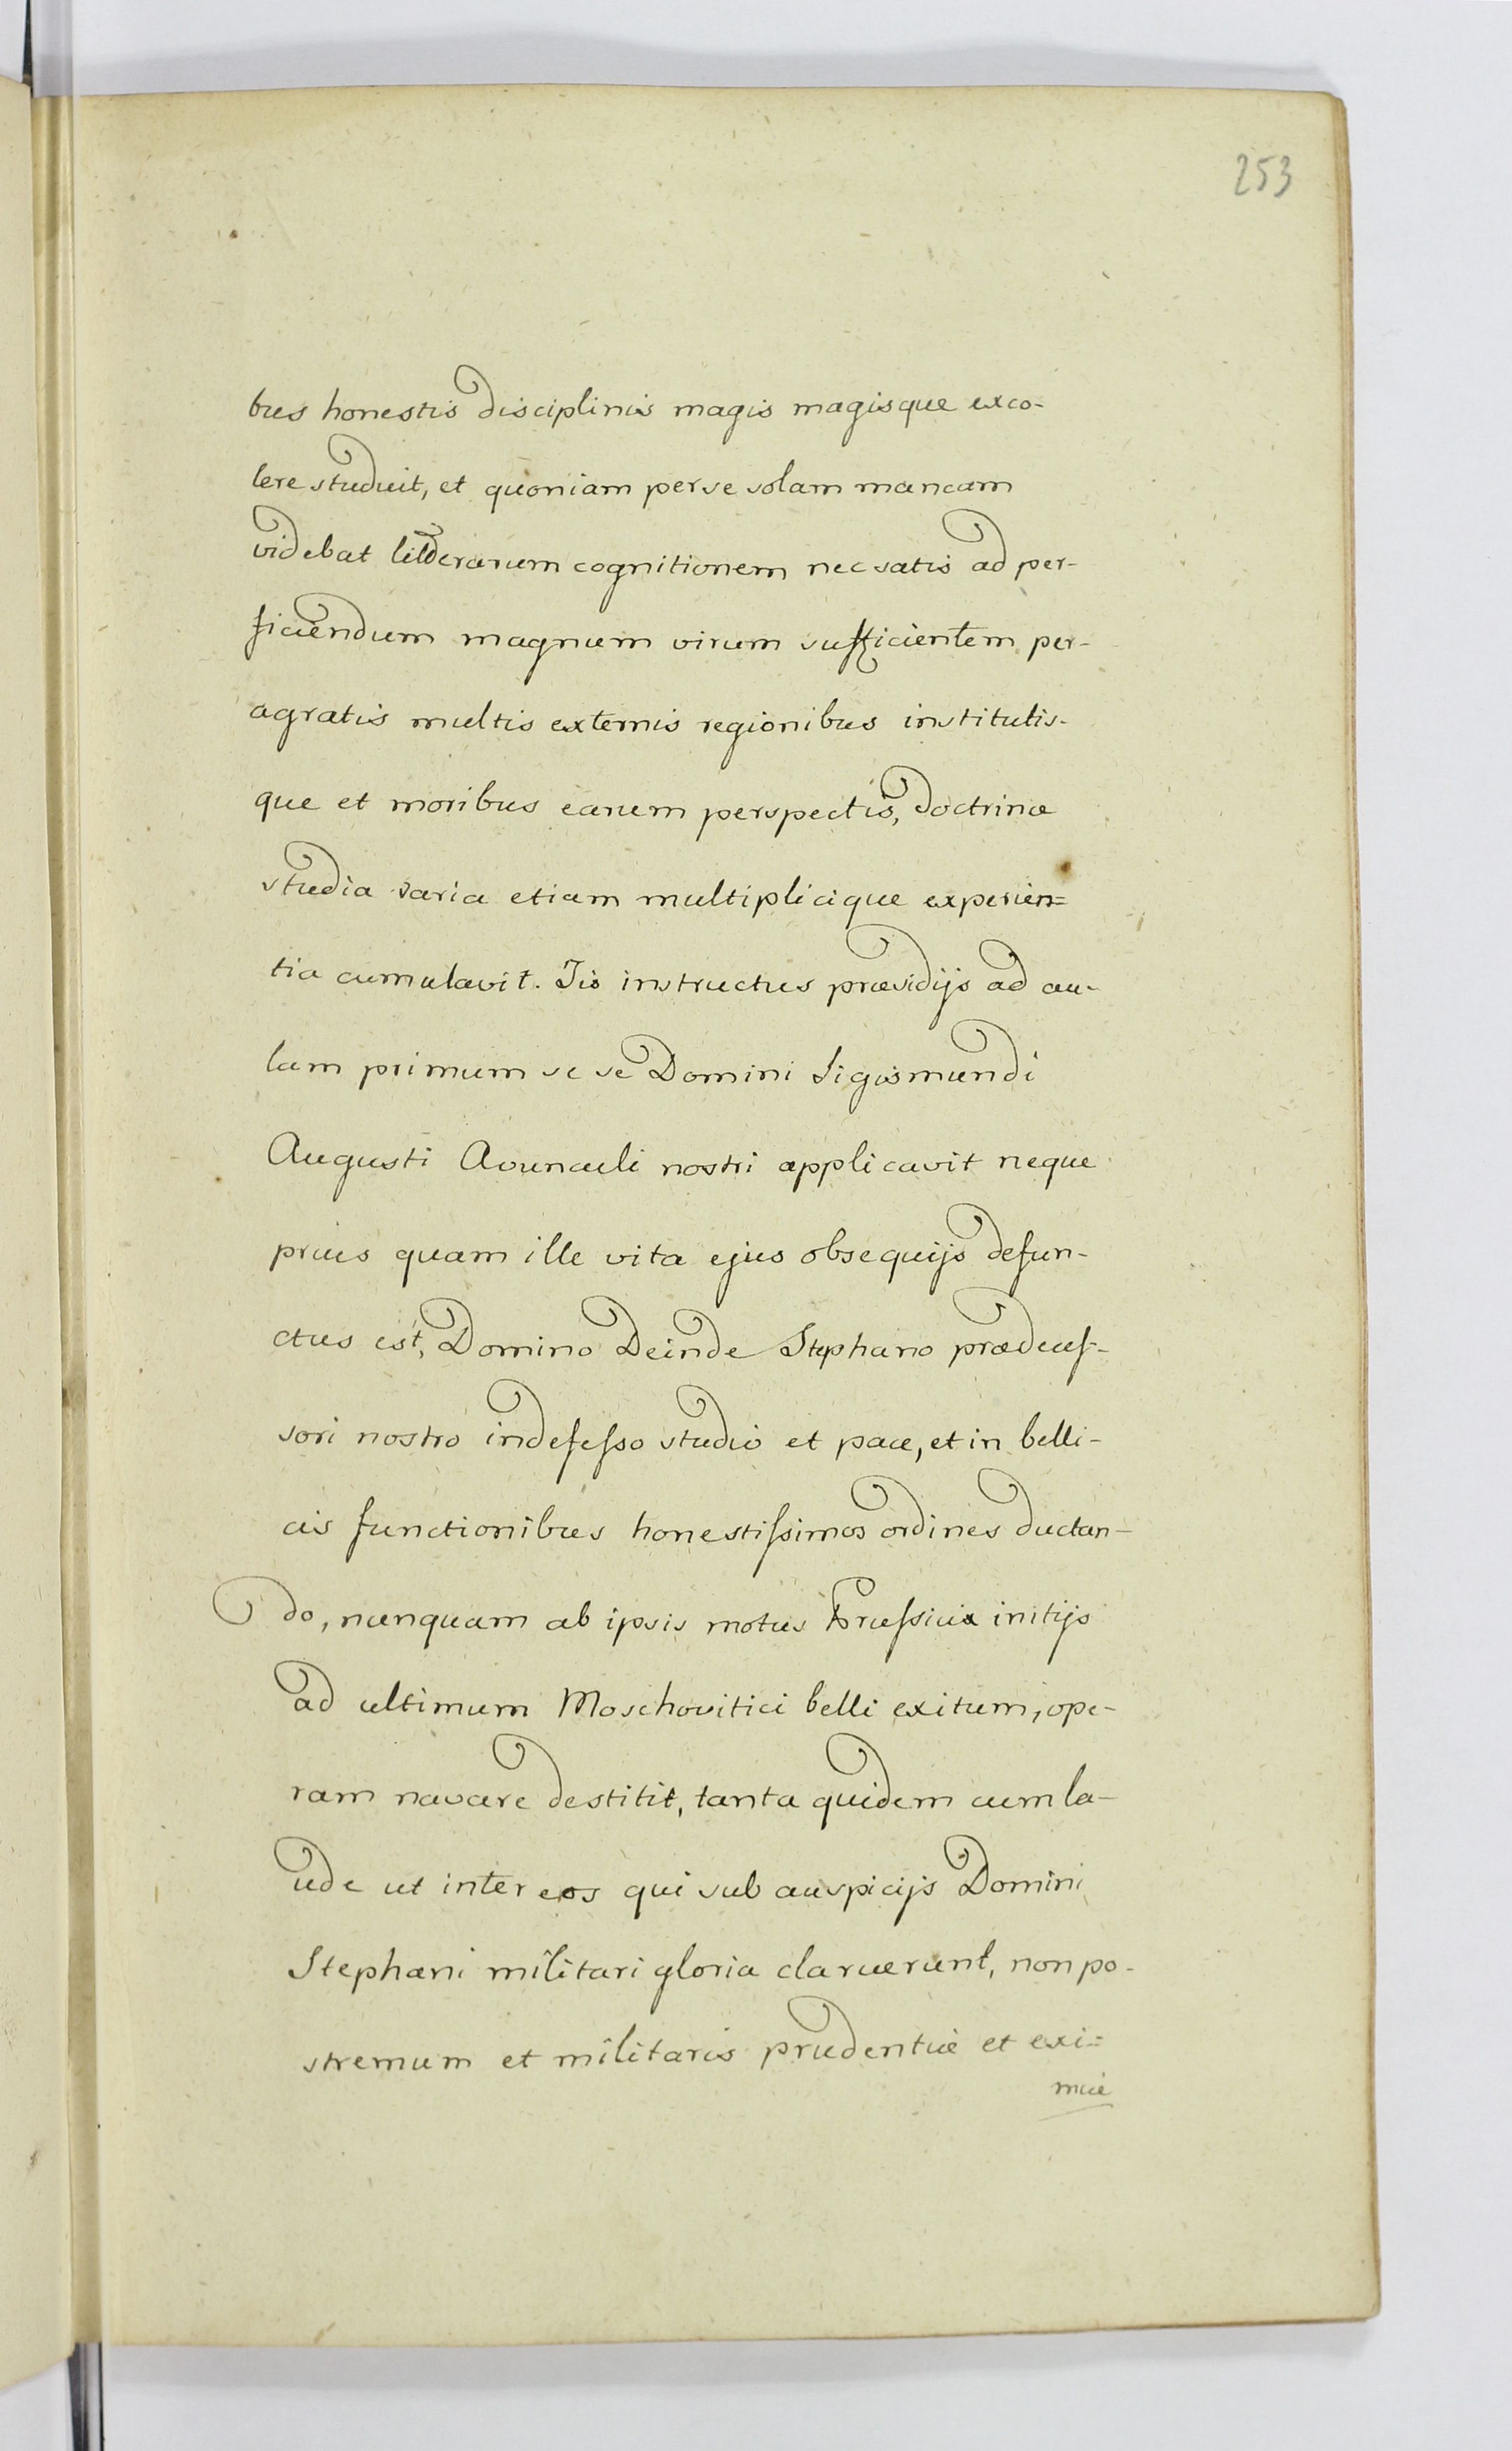 253
bus honestis disciplinis magis magisque exco-
lere studuit, et quoniam per se solam mancam
videbat litterarum cognitionem nec satis ad per-
ficiendum magnum virum sufficientem, per-
agratis multis externis regionibus institutis-
que et moribus earum perspectis, doctrinæ
studia varia etiam multiplicique experien=
tia cumulavit. Iis instructus præsidijs ad au-
lam primum se se Domini Sigismundi
Augusti Avunculi nostri applicavit neque
prius quam ille vita ejus obsequijs defun-
ctus est, Domino Deinde Stephano prædeceſ-
sori nostro indefeſso studio et pace, et in belli-
cis functionibus honestiſsimos ordines ductan-
do, nunquam ab ipsis motus Pruſsici initijs
ad ultimum Moschovitici belli exitum, ope-
ram navare destitit, tanta quidem cum la-
ude ut inter eos qui sub auspicijs Domini
Stephani militari gloria claruerunt, non po-
stremum et militaris prudentiæ et exi=
miæ